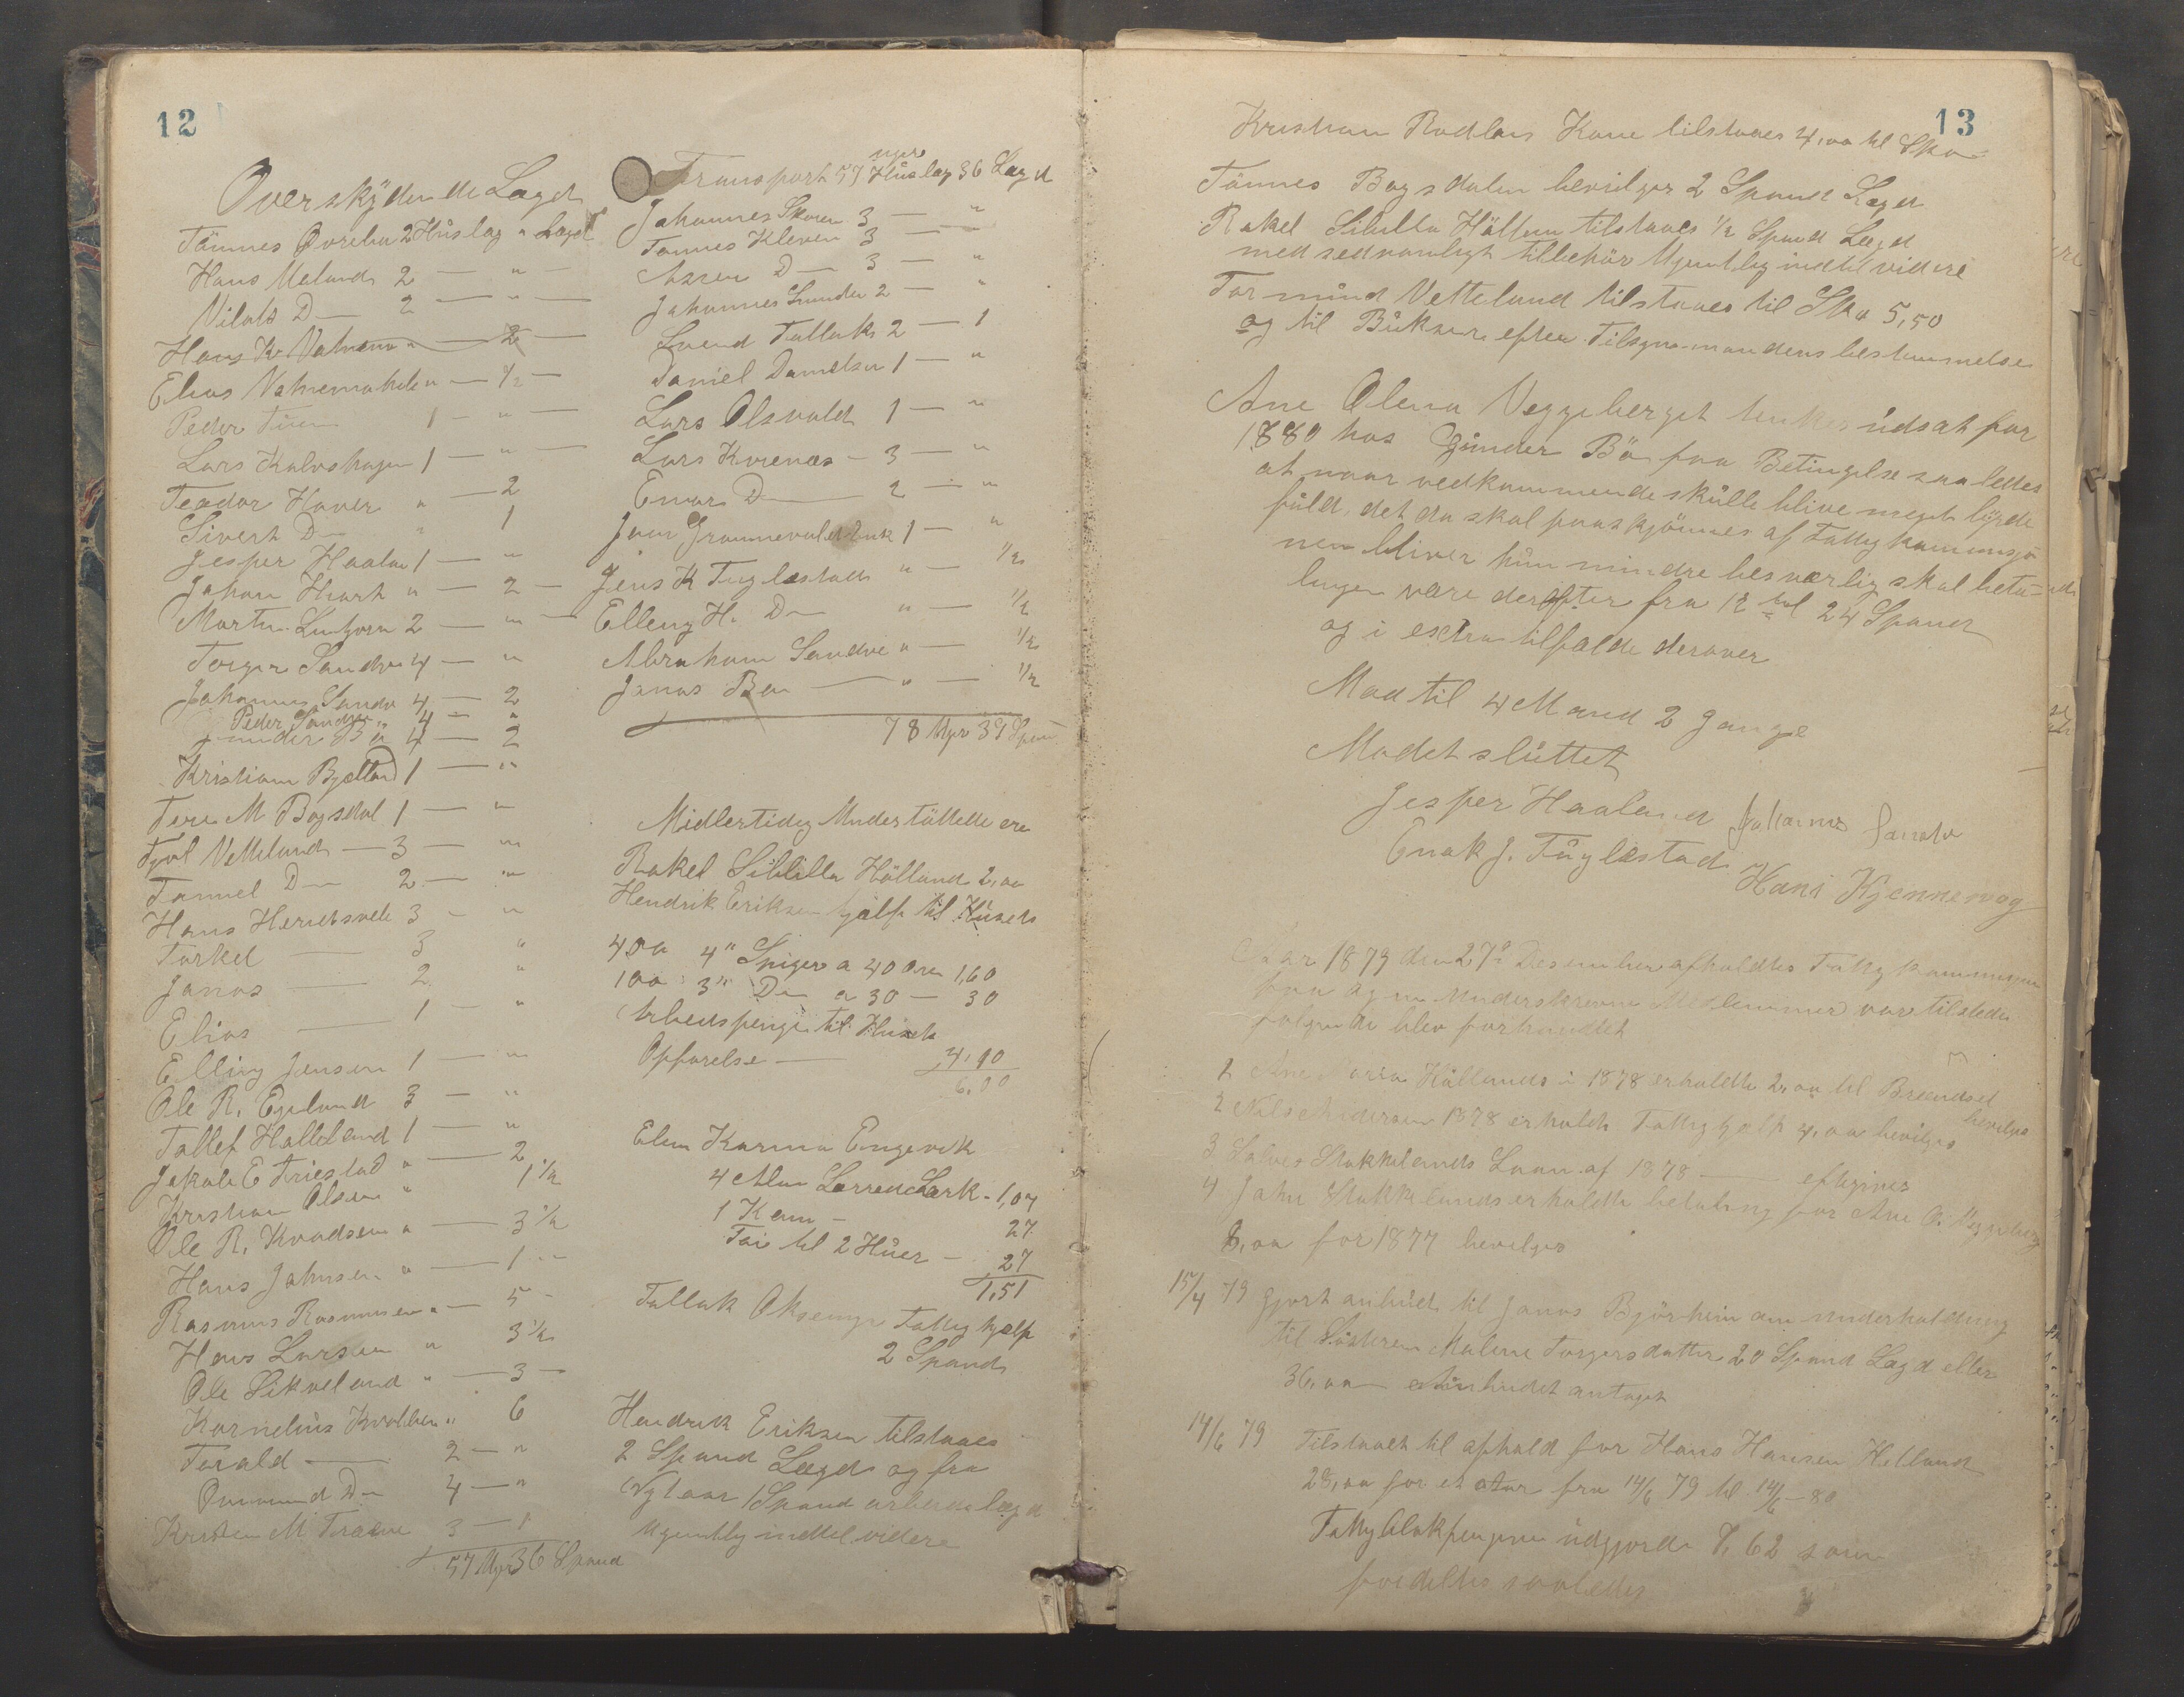 12
Overskydende Lægd
Tönnes Øvrebu 2 Huslag " Lægd
Hans Meland 2 — " —
Vilats D— 2 — " —
Hans Kr Vatnem " — 2 —
Elias Vatnemohele " — 1/2 —
Peder Tuen 1 — " —
Lars Kalvshagen 1 — " —
Teodor Haver " — 2
Sivert D— " 1
Jesper Haaland 1 — "
Johan Huart " — 2 —
Martin 2 — " —
Torger Sandve 4 — "
Johannes Sandve 4 — 2
Peder Sandve 4 — "
Gunder Bö 4 — 2
Kristian Bjelland 1 — "
Tere M Bogsdal 1 — "
Vetteland — 3 — "
Tönnel D— 2 — "
Hans 3 — "
Torkel — 3 "
Jonas — 2 "
Elias — 1 — "
Elling Jensen 1 — "
Ole R. Egeland 3 — "
Tallef Halleland 1 — "
Jakob E Friestad " — 2
Kristian Olsen " 1 1/2
Ole R. Knudsen " — 3 1/2
Hans Johnsen " — 1 —
Rasmus Rasmussen " — 5 —
Hans Larsen " 3 1/2
Ole Sikveland " — 3 —
Kornelius " 6
Torald — 2 — "
Ommund D— 4 — "
Kristen M 3 — 1
57 Mgr 36 Spand
mgr
Transport 57 Huslag 36 Lægd
Johannes Skoren 3 — "
Tönnes Kleven 3 — —
D— 3 — "
Johannes 2 — "
Svend Tallaks 2 — 1
Daniel Danielsen 1 — "
Lars Olsvold 1 — "
Lars Kvenæs — 3 — "
Einar D— 2 — "
1 — "
Jens K Tuglestad " — 1/2
Elleng H. D— " — 1/2
Abraham Sandve " — 1/2
Jonas Bö — " — 1/2
78 Mgr 39 Spand
Midlertidig Understöttede ere
Rakel Sibilla Hölland 2,00
Hendrik Eriksen hjælp til Husets
400 4" Spiger a 40 Øre 1,60
100 3" D— a 30 — 30
Arbeidspenge til Husets
Opförelse — 4,10
6,00
Elen Karina Engevik
4 Alen Lærred Særk - 1,04
1 — 27
Toi til 2 Huer — 27
1,51
Tallak Aksenyr Fattighjælp
2 Spand
Hendrik Eriksen tilstaaes
2 Spand Lægd og fra
Nytaar 1 Spand lægd
Ugentlig indtil videre
13
Kristian Rodlens Kone tilstaaes 4,00 til Sko
Tönnes Bogsdalen bevilges 2 Spand Lægd
Rakel Sibilla Hölland tilstaaes 1/2 Spand Lægd
med sedvanligt tilbehör Ugentlig indtil videre
Tormund Vetteland tilstaaes til Sko 5,50
og til Bukser efter Tilsynsmandens bestemmelse
Ane Olena Veggeberget tenkes udsat for
1880 hos Gunder Bö paa Betingelse saaledes
at naar vedkommende skulle blive meget byrde
fuld, det da skal paaskjönnes af Fattigkommisjo
nen bliver hun mindre besværlig skal beta-
lingen være derefter fra 12 til 24 Spand
og i extra tilfælde derover
Mad til 4 Mand 2 Gange
Mödet sluttet
Jesper Haaland Johannes Sandve
Enok J. Tuglestad
Hans Kjennevog
Aar 1879 den 27de Desember afholdtes Fattigkommisjon
underskrevne Medlemmer var tilstede
fölgende blev forhandlet
1 Ane Maria Höllands i 1878 erholdte 2,00 til Brændsel
bevilges
2 Nils Andersen 1878 erholdte Fattighjælp 4,00 bevilges
3 Salves Stokkelands Laan af 1878 — eftergives
4 John Stokkelands erholdte betaling for Ane O. Veggeberg
8,00 for 1877 bevilges
15/4 79 gjort anbud til Jonas Björheim om underholdning
til Södteren Malene Torgersdatter 20 Spand Lægd eller
36,00 Anbudet antaget
14/6 79 Tilstaaet til ophold for Hans Hansen Helland
28,00 for et Aar fra 14/6 79 til 14/6 — 80
Fattigblokpengene udgjorde 7,62 som
fordeltes saaledes